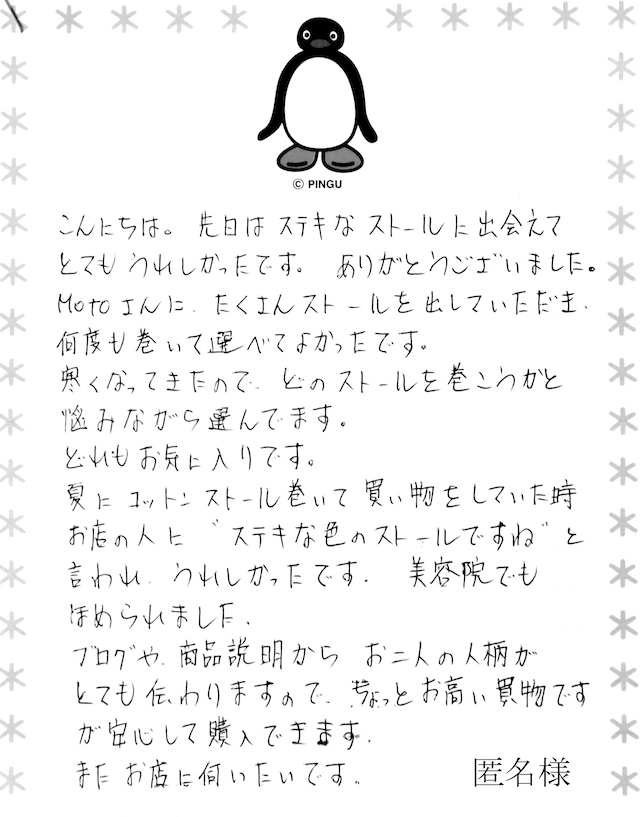 © PINGU
こんにちは。先日はステキなストールに出会えて
とてもうれしかったです。ありがとうございました。
Motoさんに、たくさんストールを出していただき、
何度も巻いて選べてよかったです。
寒くなってきたので、どのストールを巻こうかと
悩みながら選んでます。
どれもお気に入りです。
夏にコットンストール巻いて買い物をしていた時
お店の人に"ステキな色のストールですね"と
言われ、うれしかったです。美容院でも
ほめられました。
ブログや、商品説明からお二人の人柄が
とても伝わりますので、ちょっとお高い買物です
が安心して購入できます。
またお店に伺いたいです。
匿名様